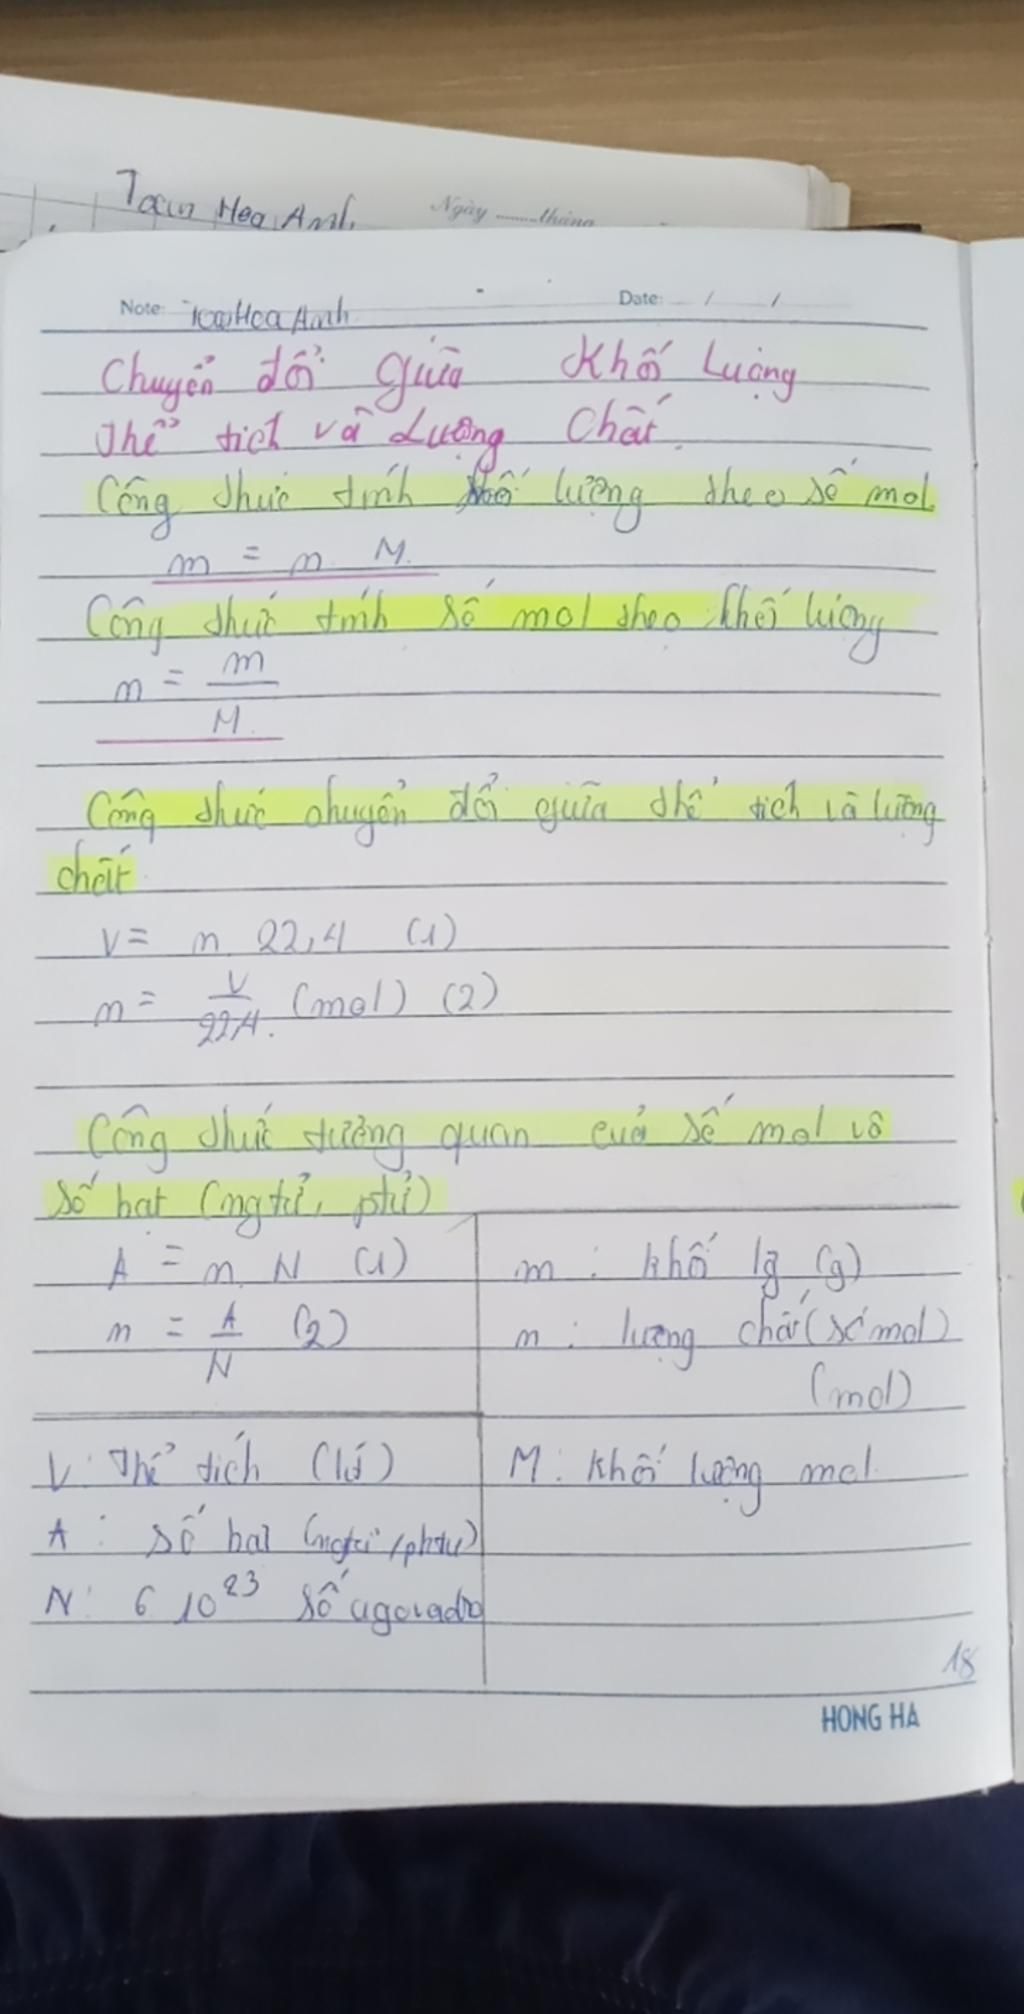 Toán Hóa Anh
Ngày ........ tháng
Note: Toán Hóa Anh
Date: / /
Chuyển đổi giữa Khối Lượng
Thể tích và Lượng Chất
Công thức tính khối lượng theo số mol.
m = n . M.
Công thức tính số mol theo khối lượng
n = m / M.
Công thức chuyển đổi giữa thể tích và lượng
chất
V = n. 22,4 (1)
n = V / 22,4. (mol) (2)
Công thức tương quan của số mol và
số hạt (ngtử, phtử)
A = n. N (1)
n = A / N (2)
m : khối lg (g)
n : lượng chất (số mol)
(mol)
V : Thể tích (lít)
A : số hạt (ngtử /phtử)
N : 6 10²³ số avogadro
M : Khối lượng mol.
18
HONG HA